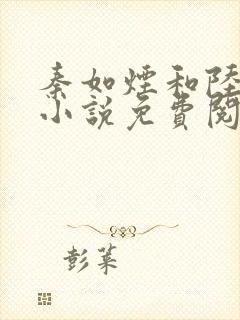 秦如煙和陸
小說免費閱
彭菜